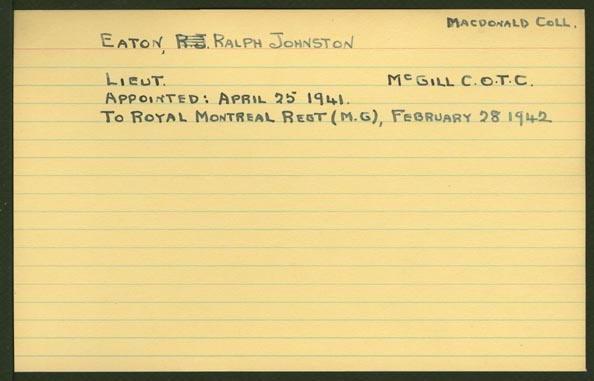 MACDONALD COLL.
EATON, R.J. RALPH JOHNSTON
LIEUT. McGILL C.O.T.C.
APPOINTED: APRIL 25 1941.
TO ROYAL MONTREAL REGT (M.G), FEBRUARY 28 1942